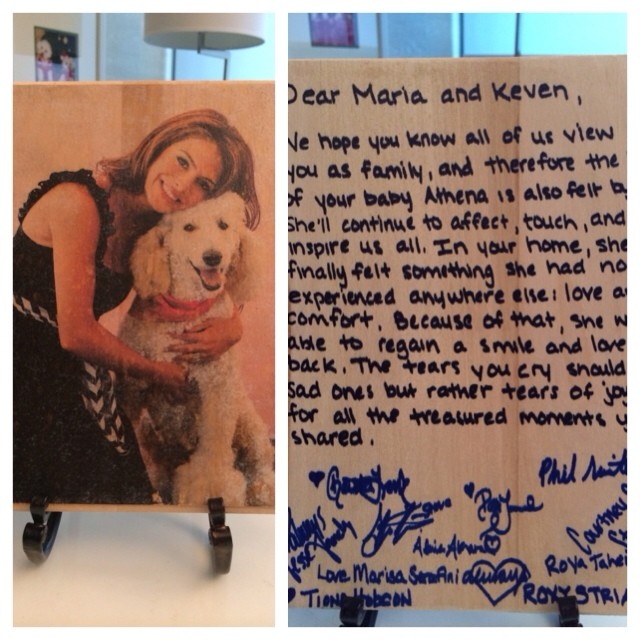 Dear Maria and Keven,
We hope you know all of us view
you as family, and therefore the
of your baby Athena is also felt by
She'll continue to affect, touch, and
inspire us all. In your home, she
finally felt something she had no
experienced anywhere else: love a
comfort. Because of that, she w
able to regain a smile and love
back. The tears you cry should
sad ones but rather tears of joy
for all the treasured moments y
shared.
Phil Smith
Love Marisa Serafini always
Roya Tahe
Tiona Hobson
ROXY STRIA